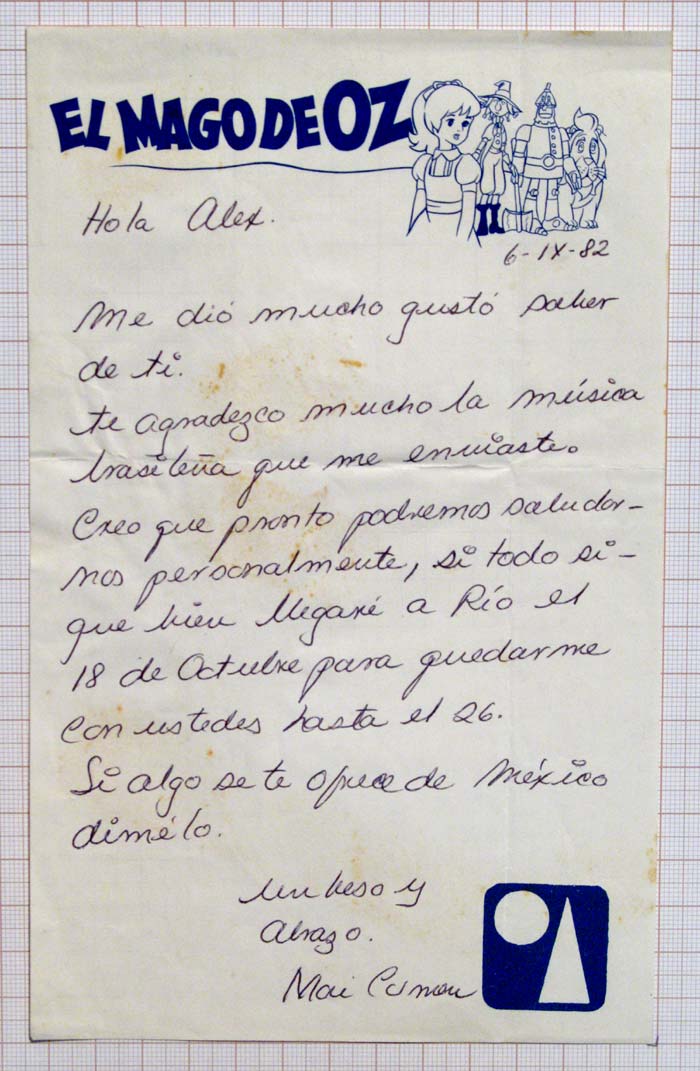 EL MAGO DE OZ
Hola Alex.
6-IX-82
Me dió mucho gustó saber
de ti.
te agradezco mucho la música
brasileña que me enviaste.
Creo que pronto podremos saludar-
nos personalmente, si todo si-
gue bien llegaré a Río el
18 de Octubre para quedarme
con ustedes hasta el 26.
Si algo se te ofrece de México
dimélo.
Un beso y
Abrazo.